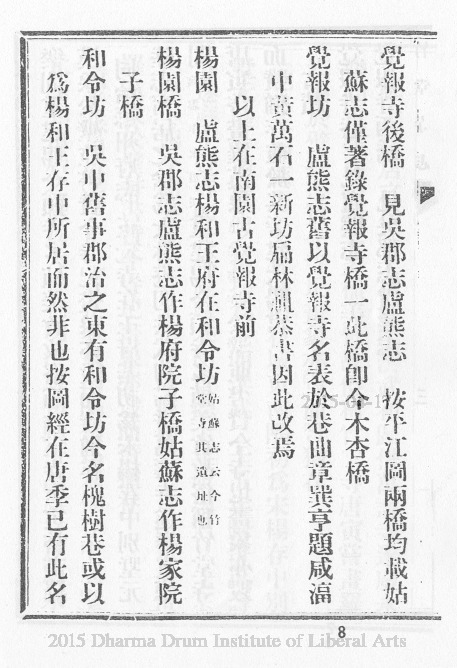 覺報寺後橋　見吳郡志盧熊志　按平江圖兩橋均載姑
蘇志僅著錄覺報寺橋一此橋卽今木杏橋
覺報坊　盧熊志舊以覺報寺名表於巷曲章巽亨題咸淳
中黃萬石一新坊扁林䖏恭書因此改焉
以上在南園古覺報寺前
楊園　盧熊志楊和王府在和令坊姑蘇志云今竹堂寺其遺址也
楊園橋　吳郡志盧熊志作楊府院子橋姑蘇志作楊家院
子橋
和令坊　吳中舊事郡治之東有和令坊今名槐樹巷或以
爲楊和王存中所居而然非也按圖經在唐季已有此名
8
2015 Dharma Drum Institute of Liberal Arts